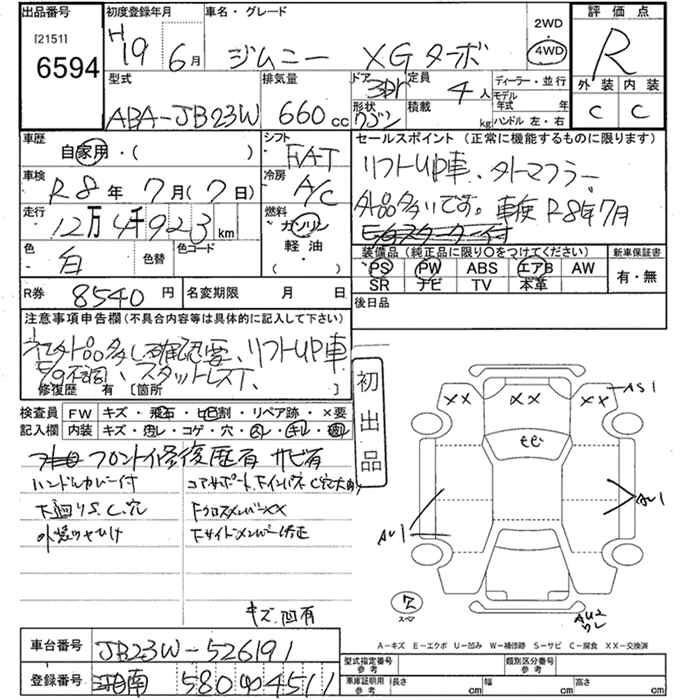 出品番号 初度登録年月 車名・グレード 2WD 評価点
[2151] 6594 H19 6月 ジムニー XGターボ 4WD R
型式 排気量 ドア 定員 ディーラー・並行 外装 内装
ABA-JB23W 660cc 3Dr 4人 モデル年式 年 C C
形状 ワゴン 積載 kg ハンドル 左・右
車歴 自家用・( ) シフト FAT
車検 R8年 7月(7日) 冷房 A/C
走行 12万4千923km 燃料 ガソリン 軽油 ( )
色 白 色替 色コード
R券 8540円 名変期限 月 日
セールスポイント (正常に機能するものに限ります)
リフトUP車、タトマフラー
外品多いです。車検R8年7月
装備品 (純正品に限り○をつけてください) 新車保証書
PS PW ABS エアB AW 有・無
SR ナビ TV 本革
後日品
注意事項申告欄(不具合内容等は具体的に記入して下さい)
社外品多し確認要、リフトUP車
スタットレス、
修復歴 有 [箇所 ]
初出品
検査員記入欄 FW キズ・飛石・ヒビ割・リペア跡・×要
内装 キズ・コゲ・穴
フロント修復歴有 サビ有
ハンドルカバー付 コアサポート、
下廻りS.C.穴 Fクロスメンバーxx
下サイドメンバー修正
キズ、凹有
車台番号 JB23W-526191
登録番号 湘南 580 4511
XX XX XX AS1
モビ
AU1 AU1
ス スペア
AU2
A-キズ E-エクボ U-凹み W-補修跡 S-サビ C-腐食 XX-交換済
型式指定番号 参考 類別区分番号 参考
車庫証明用 参考 長さ cm 幅 cm 高さ cm